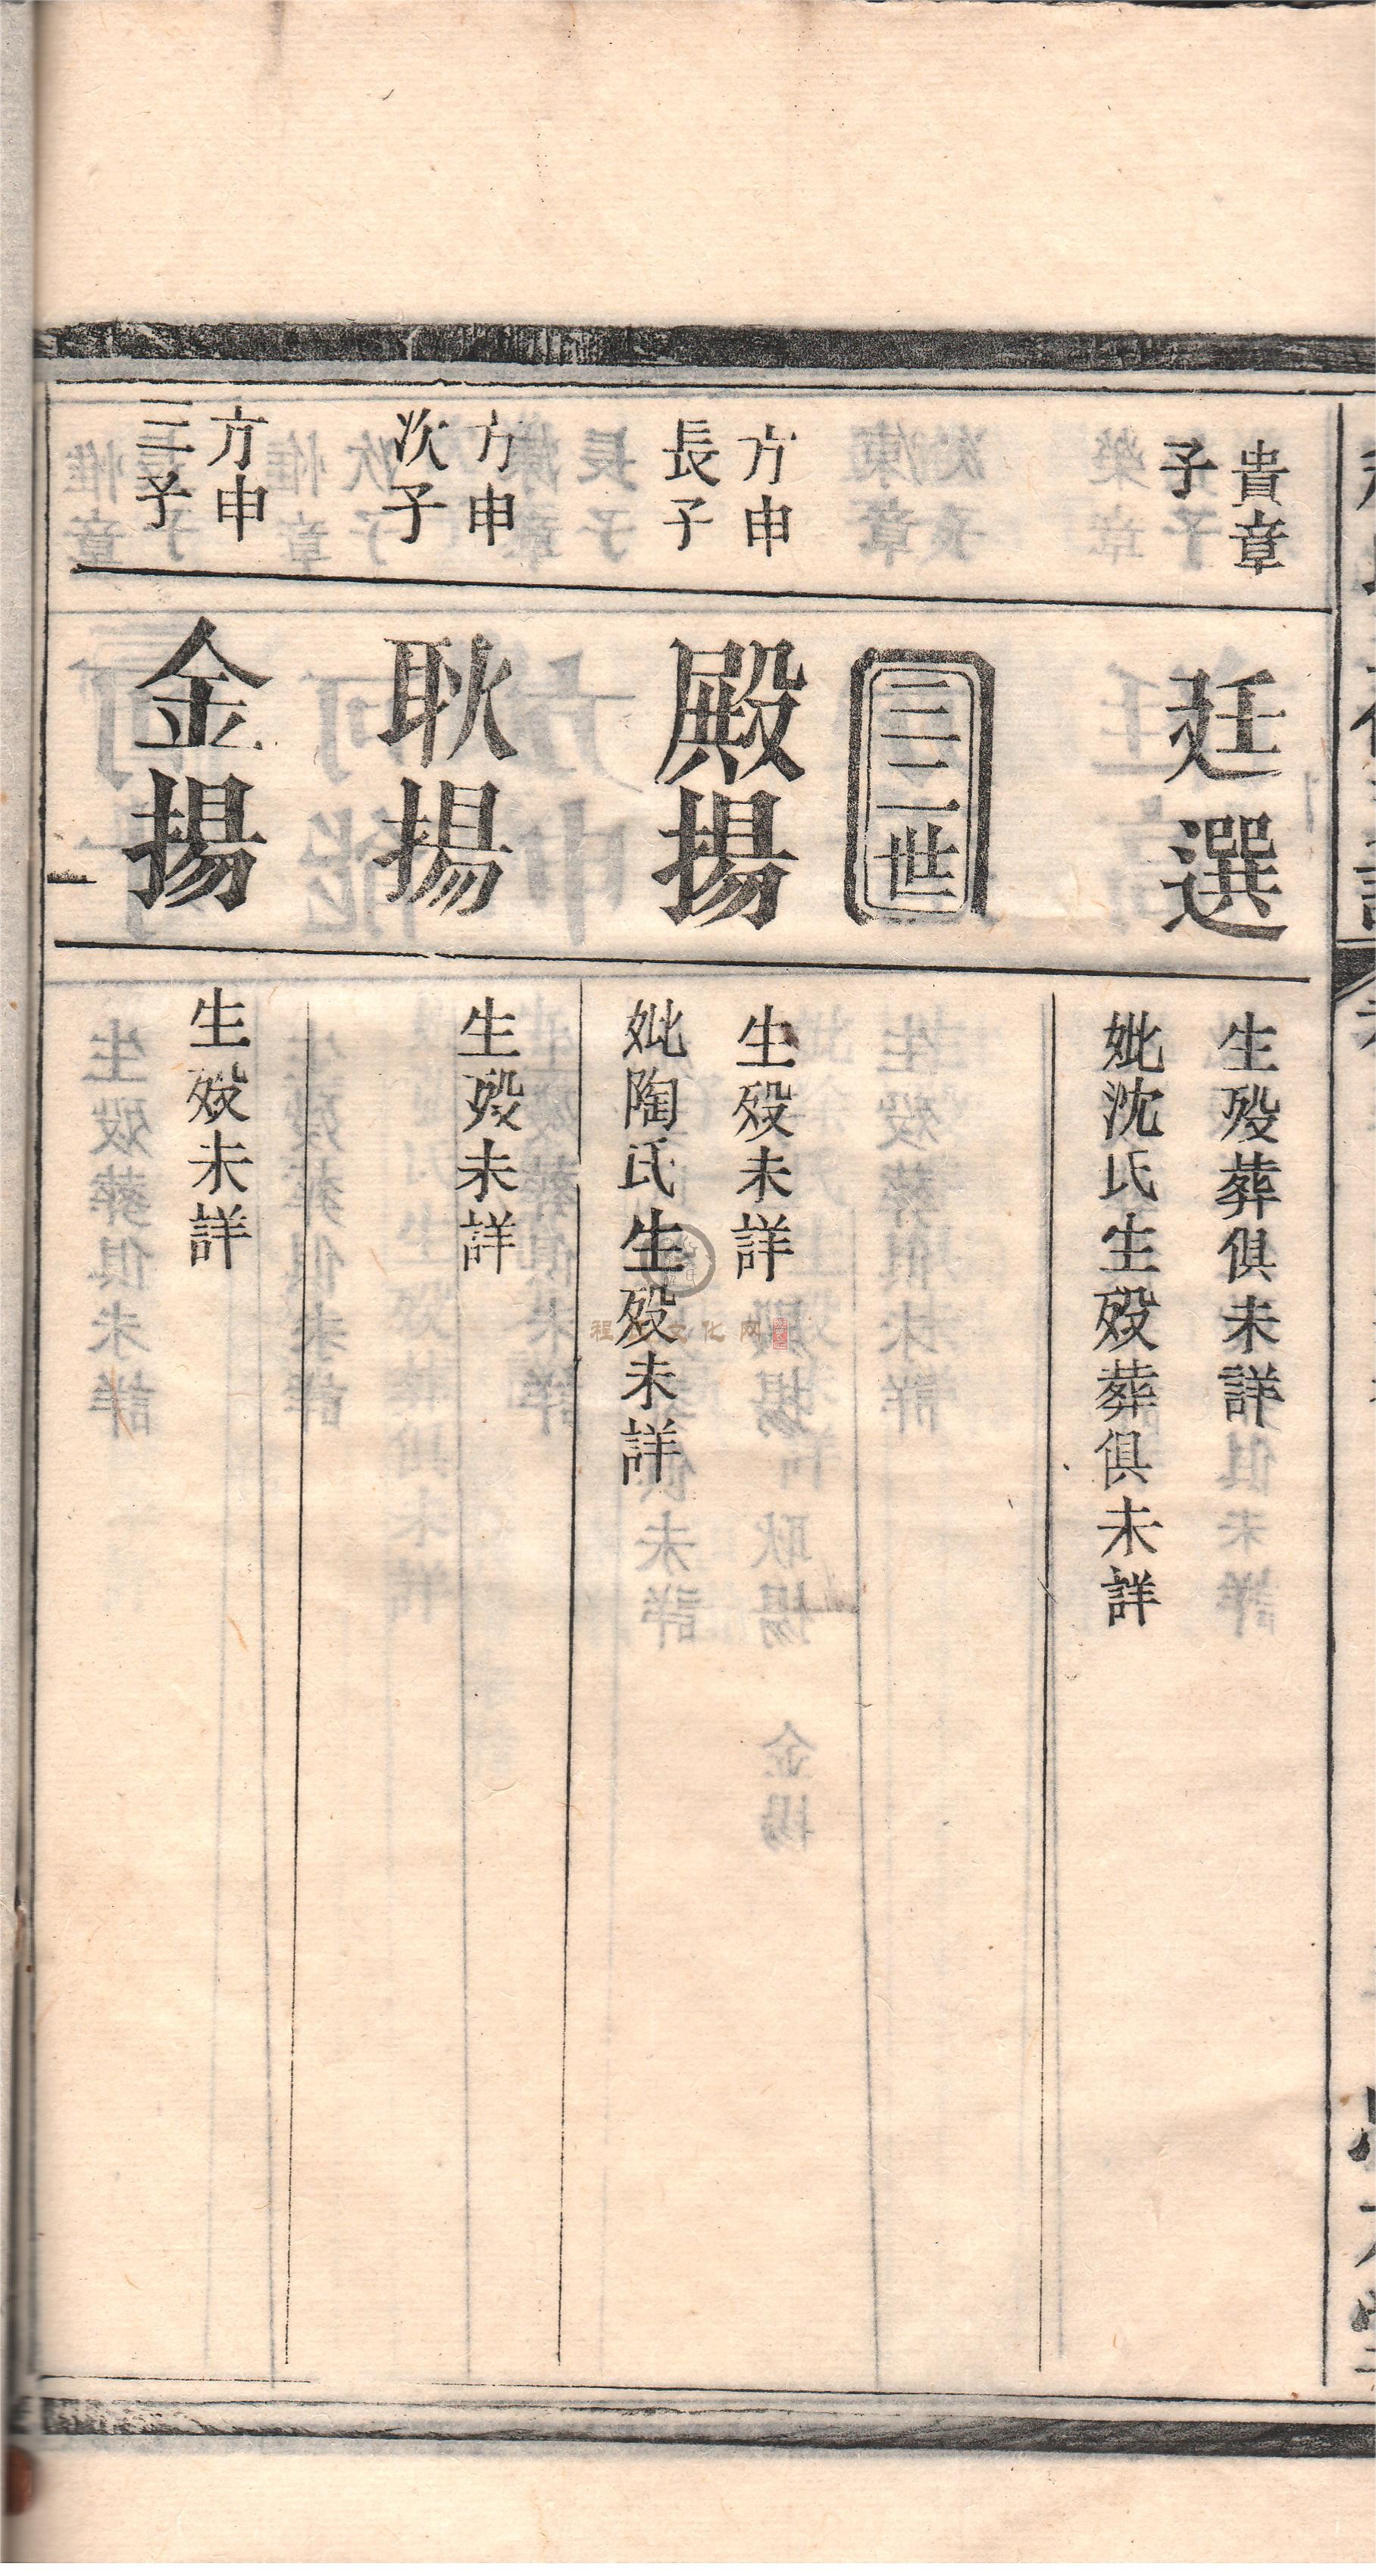 貴章
子
廷選
生殁葬俱未詳
妣沈氏生殁葬俱未詳
三二世
方申
長子
殿揚
生殁未詳
妣陶氏生殁未詳
方申
次子
耿揚
生殁未詳
方申
三子
金揚
生殁未詳
程
文化网